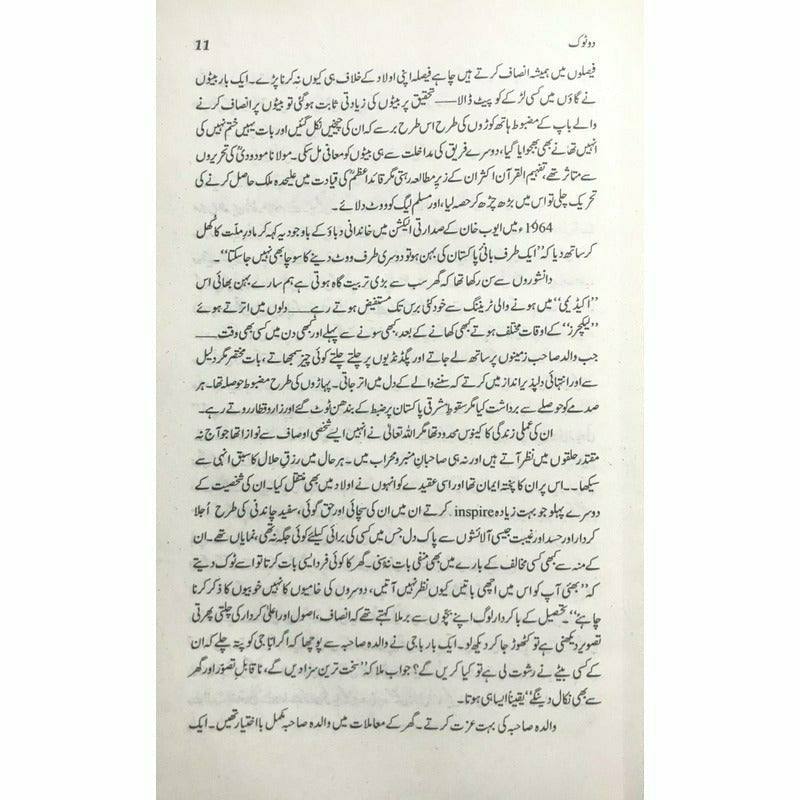 دوٹوک 11
فیصلوں میں ہمیشہ انصاف کرتے ہیں چاہے فیصلہ اپنی اولاد کے خلاف ہی کیوں نہ کرنا پڑے۔ ایک بار بیٹوں
نے گاؤں میں کسی لڑکے کو پیٹ ڈالا___ تحقیق پر بیٹوں کی زیادتی ثابت ہوگئی تو بیٹوں پر انصاف کرنے
والے باپ کے مضبوط ہاتھ کوڑوں کی طرح اس طرح برسے کہ ان کی چیخیں نکل گئیں اور بات یہیں ختم نہیں کی
انہیں تھانے بھی بھجوایا گیا، دوسرے فریق کی مداخلت سے ہی بیٹوں کو معافی مل سکی۔ مولانا مودودیؒ کی تحریروں
سے متاثر تھے، تفہیم القرآن اکثر ان کے زیرِ مطالعہ رہتی مگر قائداعظمؒ کی قیادت میں علیحدہ ملک حاصل کرنے کی
تحریک چلی تو اس میں بڑھ چڑھ کر حصہ لیا، اور مسلم لیگ کو ووٹ دلائے۔
1964ء میں ایوب خان کے صدارتی الیکشن میں خاندانی دباؤ کے باوجود یہ کہہ کر مادرِ ملّت کا کُھل
کر ساتھ دیا کہ ”ایک طرف بانیٔ پاکستان کی بہن ہو تو دوسری طرف ووٹ دینے کا سوچا بھی نہیں جاسکتا“۔
دانشوروں سے سن رکھا تھا کہ گھر سب سے بڑی تربیت گاہ ہوتی ہے ہم سارے بہن بھائی اس
”اکیڈیمی“ میں ہونے والی ٹریننگ سے خود کئی برس تک مستفیض ہوتے رہے___ دلوں میں اترتے ہوئے
”لیکچرز“ کے اوقات مختلف ہوتے کبھی کھانے کے بعد، کبھی سونے سے پہلے اور کبھی دن میں کسی بھی وقت___
جب والد صاحب زمینوں پر ساتھ لے جاتے اور پگڈنڈیوں پر چلتے چلتے کوئی چیز سمجھاتے، بات مختصر مگر دلیل
سے اور انتہائی دلپذیر انداز میں کرتے کہ سننے والے کے دل میں اتر جاتی۔ پہاڑوں کی طرح مضبوط حوصلہ تھا۔ ہر
صدمے کو حوصلے سے برداشت کیا مگر سقوطِ مشرقی پاکستان پر ضبط کے بندھن ٹوٹ گئے اور زار و قطار روتے رہے۔
ان کی عملی زندگی کا کینوس محدود تھا مگر اللہ تعالیٰ نے انہیں ایسے شخصی اوصاف سے نوازا تھا جو آج نہ
مقتدر حلقوں میں نظر آتے ہیں اور نہ ہی صاحبانِ منبر و محراب میں۔ ہر حال میں رزقِ حلال کا سبق انہی سے
سیکھا۔۔ اس پر ان کا پختہ ایمان تھا اور اسی عقیدے کو انہوں نے اولاد میں بھی منتقل کیا۔ ان کی شخصیت کے
دوسرے پہلو جو بہت زیادہ inspire کرتے ان میں ان کی سچائی اور حق گوئی، سفید چاندنی کی طرح اُجلا
کردار اور حسد اور غیبت جیسی آلائشوں سے پاک دل جس میں کسی کی برائی کیلئے کوئی جگہ نہ تھی، نمایاں تھے۔ ان
کے منہ سے کبھی کسی مخالف کے بارے میں بھی منفی بات نہ سنی۔ گھر کا کوئی فرد ایسی بات کرتا تو اسے ٹوک دیتے
کہ ”بھئی آپ کو اس میں اچھی باتیں کیوں نظر نہیں آتیں، دوسروں کی خامیوں کا نہیں خوبیوں کا ذکر کرنا
چاہئے“۔ تحصیل کے باکردار لوگ اپنے بچوں سے برملا کہتے تھے کہ انصاف، اصول اور اعلیٰ کردار کی چلتی پھرتی
تصویر دیکھنی ہے تو کٹھوڑ جا کر دیکھ لو۔ ایک بار باجی نے والدہ صاحبہ سے پوچھا کہ اگر اباّجی کو پتہ چلے کہ ان
کے کسی بیٹے نے رشوت لی ہے تو کیا کریں گے؟ جواب ملا کہ ”سخت ترین سزا دیں گے، ناقابلِ تصوّر اور گھر
سے بھی نکال دینگے“ یقیناً ایسا ہی ہوتا۔
والدہ صاحبہ کی بہت عزت کرتے۔ گھر کے معاملات میں والدہ صاحبہ مکمل بااختیار تھیں۔ ایک